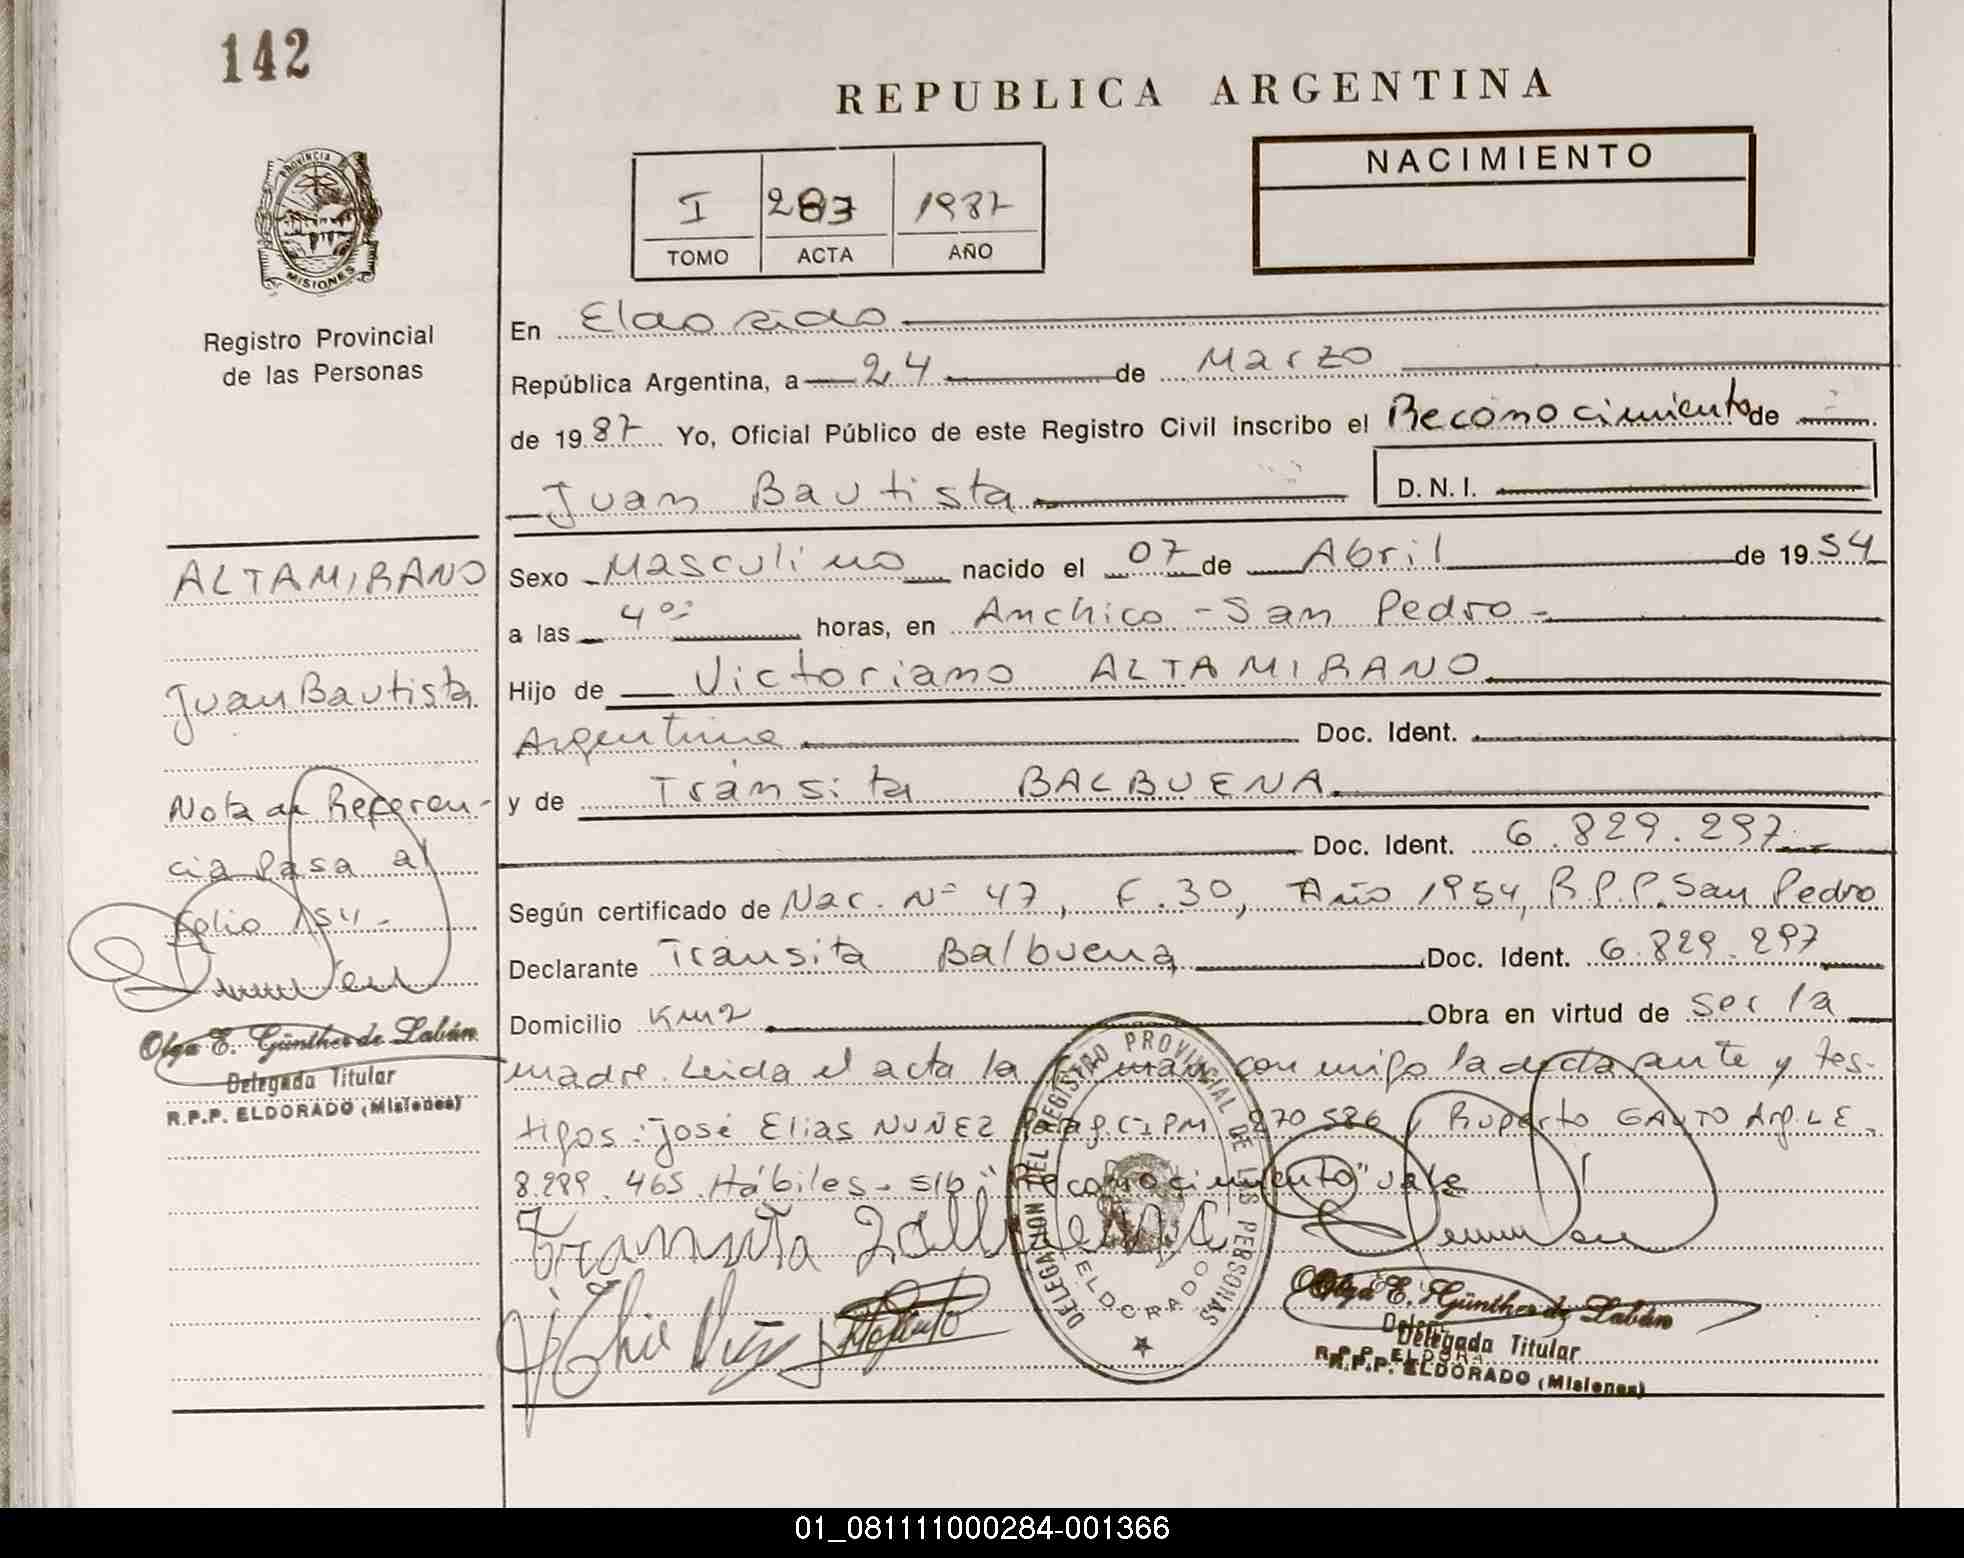 142
REPUBLICA ARGENTINA
PROVINCIA
MISIONES
Registro Provincial
de las Personas
I 283 1987
TOMO ACTA AÑO
NACIMIENTO
En Eldorado
República Argentina, a 24 de Marzo
de 1987 Yo, Oficial Público de este Registro Civil inscribo el Reconocimiento de
Juan Bautista D.N.I.
Sexo Masculino nacido el 07 de Abril de 1954
a las 4 00 horas, en Anchico - San Pedro -
Hijo de Victoriano ALTAMIRANO
Argentina Doc. Ident.
y de Tránsita BALBUENA
Doc. Ident. 6.829.297
Según certificado de Nac. Nº 47, F. 30, Año 1954, R.P.P. San Pedro
Declarante Tránsita Balbuena Doc. Ident. 6.829.297
Domicilio Km 2 Obra en virtud de ser la
madre. Leida el acta la firman conmigo la declarante y tes-
tigos: José Elias NUÑEZ Parag. CIPM 270586, Ruperto GAUTO Arg. LE.
8.289.465. Hábiles - s/b "Reconocimiento" vale
Transita Balbuena
ALTAMIRANO
Juan Bautista
Nota de Referen-
cia Pasa al
folio 154 -
Olga E. Günther de Labán
Delegada Titular
R.P.P. ELDORADO (Misiones)
DELEGACION DEL REGISTRO PROVINCIAL DE LAS PERSONAS
ELDORADO
Olga E. Günther de Labán
Delegada Titular
R.P.P. ELDORADO (Misiones)
01_081111000284-001366